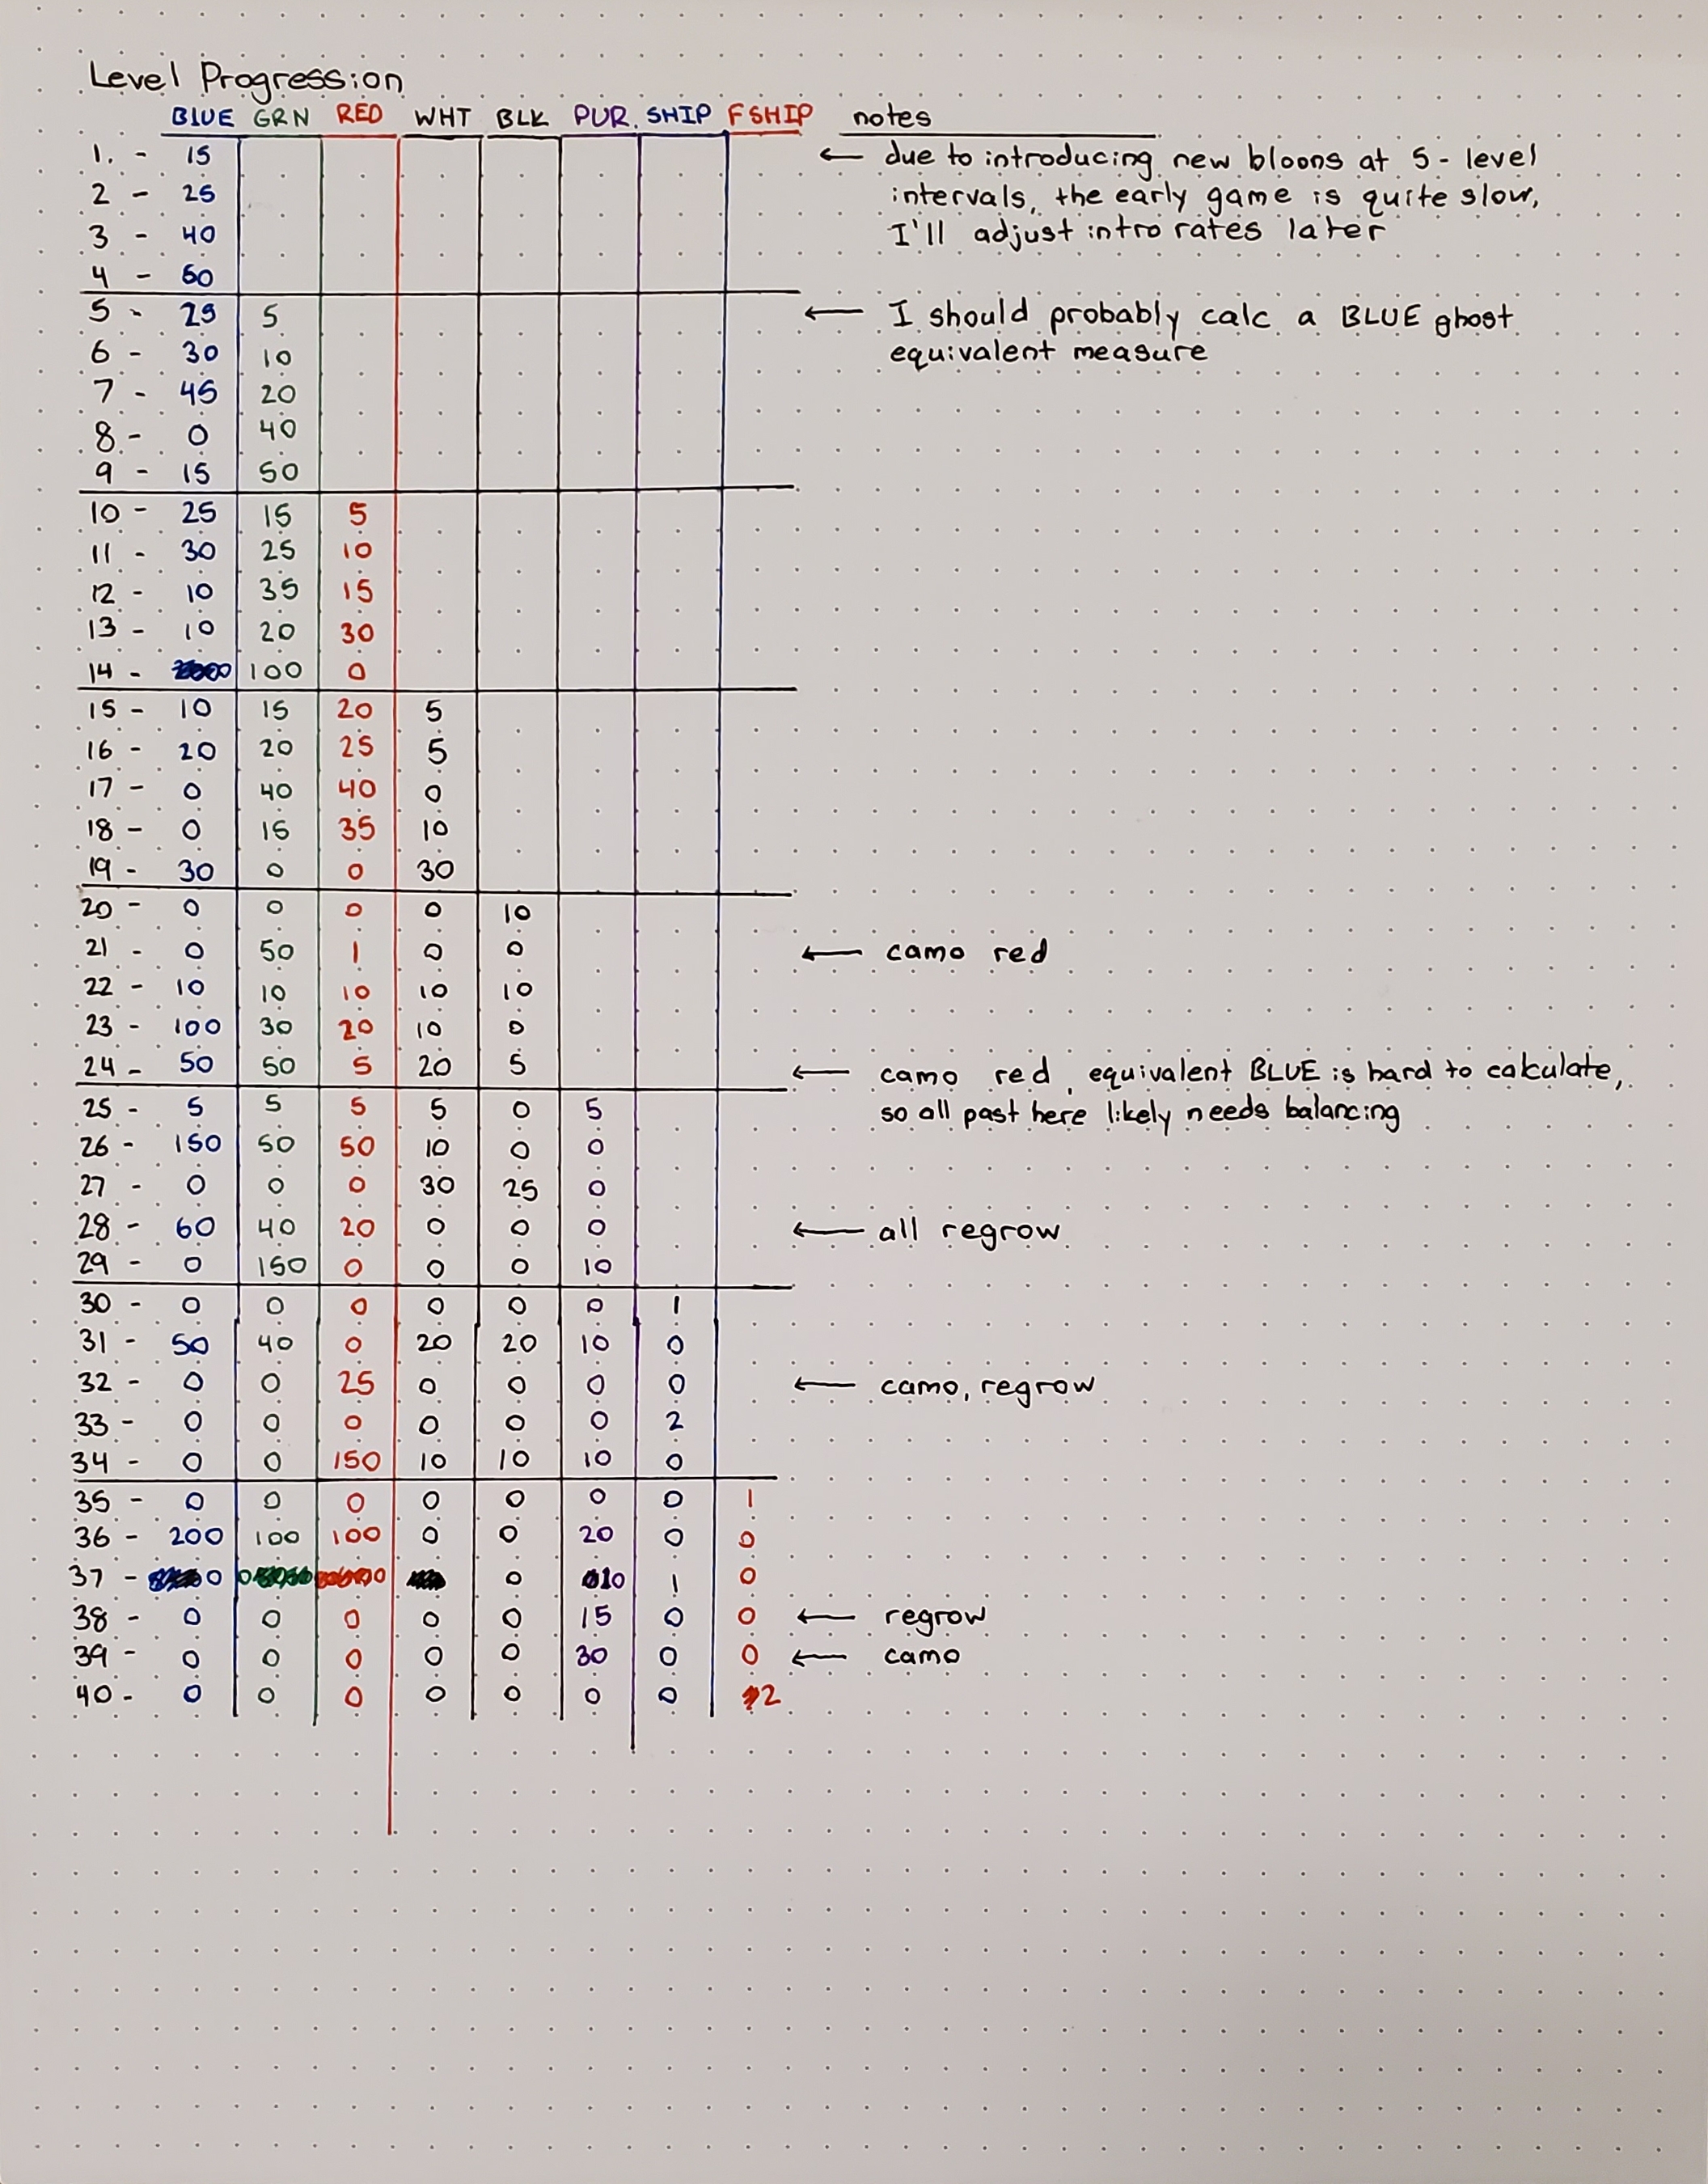 Level Progression
BLUE GRN RED WHT BLK PUR. SHIP FSHIP notes
1. - 15 ← due to introducing new bloons at 5-level
2 - 25 intervals, the early game is quite slow,
3 - 40 I'll adjust intro rates later
4 - 60
5 - 25 5 ← I should probably calc a BLUE ghost
6 - 30 10 equivalent measure
7 - 45 20
8 - 0 40
9 - 15 50
10 - 25 15 5
11 - 30 25 10
12 - 10 35 15
13 - 10 20 30
14 - 100 0
15 - 10 15 20 5
16 - 20 20 25 5
17 - 0 40 40 0
18 - 0 15 35 10
19 - 30 0 0 30
20 - 0 0 0 0 10
21 - 0 50 1 0 0 ← camo red
22 - 10 10 10 10 10
23 - 100 30 20 10 0
24 - 50 50 5 20 5 ← camo red, equivalent BLUE is hard to calculate,
25 - 5 5 5 5 0 5 so all past here likely needs balancing
26 - 150 50 50 10 0 0
27 - 0 0 0 30 25 0
28 - 60 40 20 0 0 0 ← all regrow
29 - 0 150 0 0 0 10
30 - 0 0 0 0 0 0 1
31 - 50 40 0 20 20 10 0
32 - 0 0 25 0 0 0 0 ← camo, regrow
33 - 0 0 0 0 0 0 2
34 - 0 0 150 10 10 10 0
35 - 0 0 0 0 0 0 0 1
36 - 200 100 100 0 0 20 0 0
37 - 0 0 0 0 10 1 0
38 - 0 0 0 0 0 15 0 0 ← regrow
39 - 0 0 0 0 0 30 0 0 ← camo
40 - 0 0 0 0 0 0 0 2